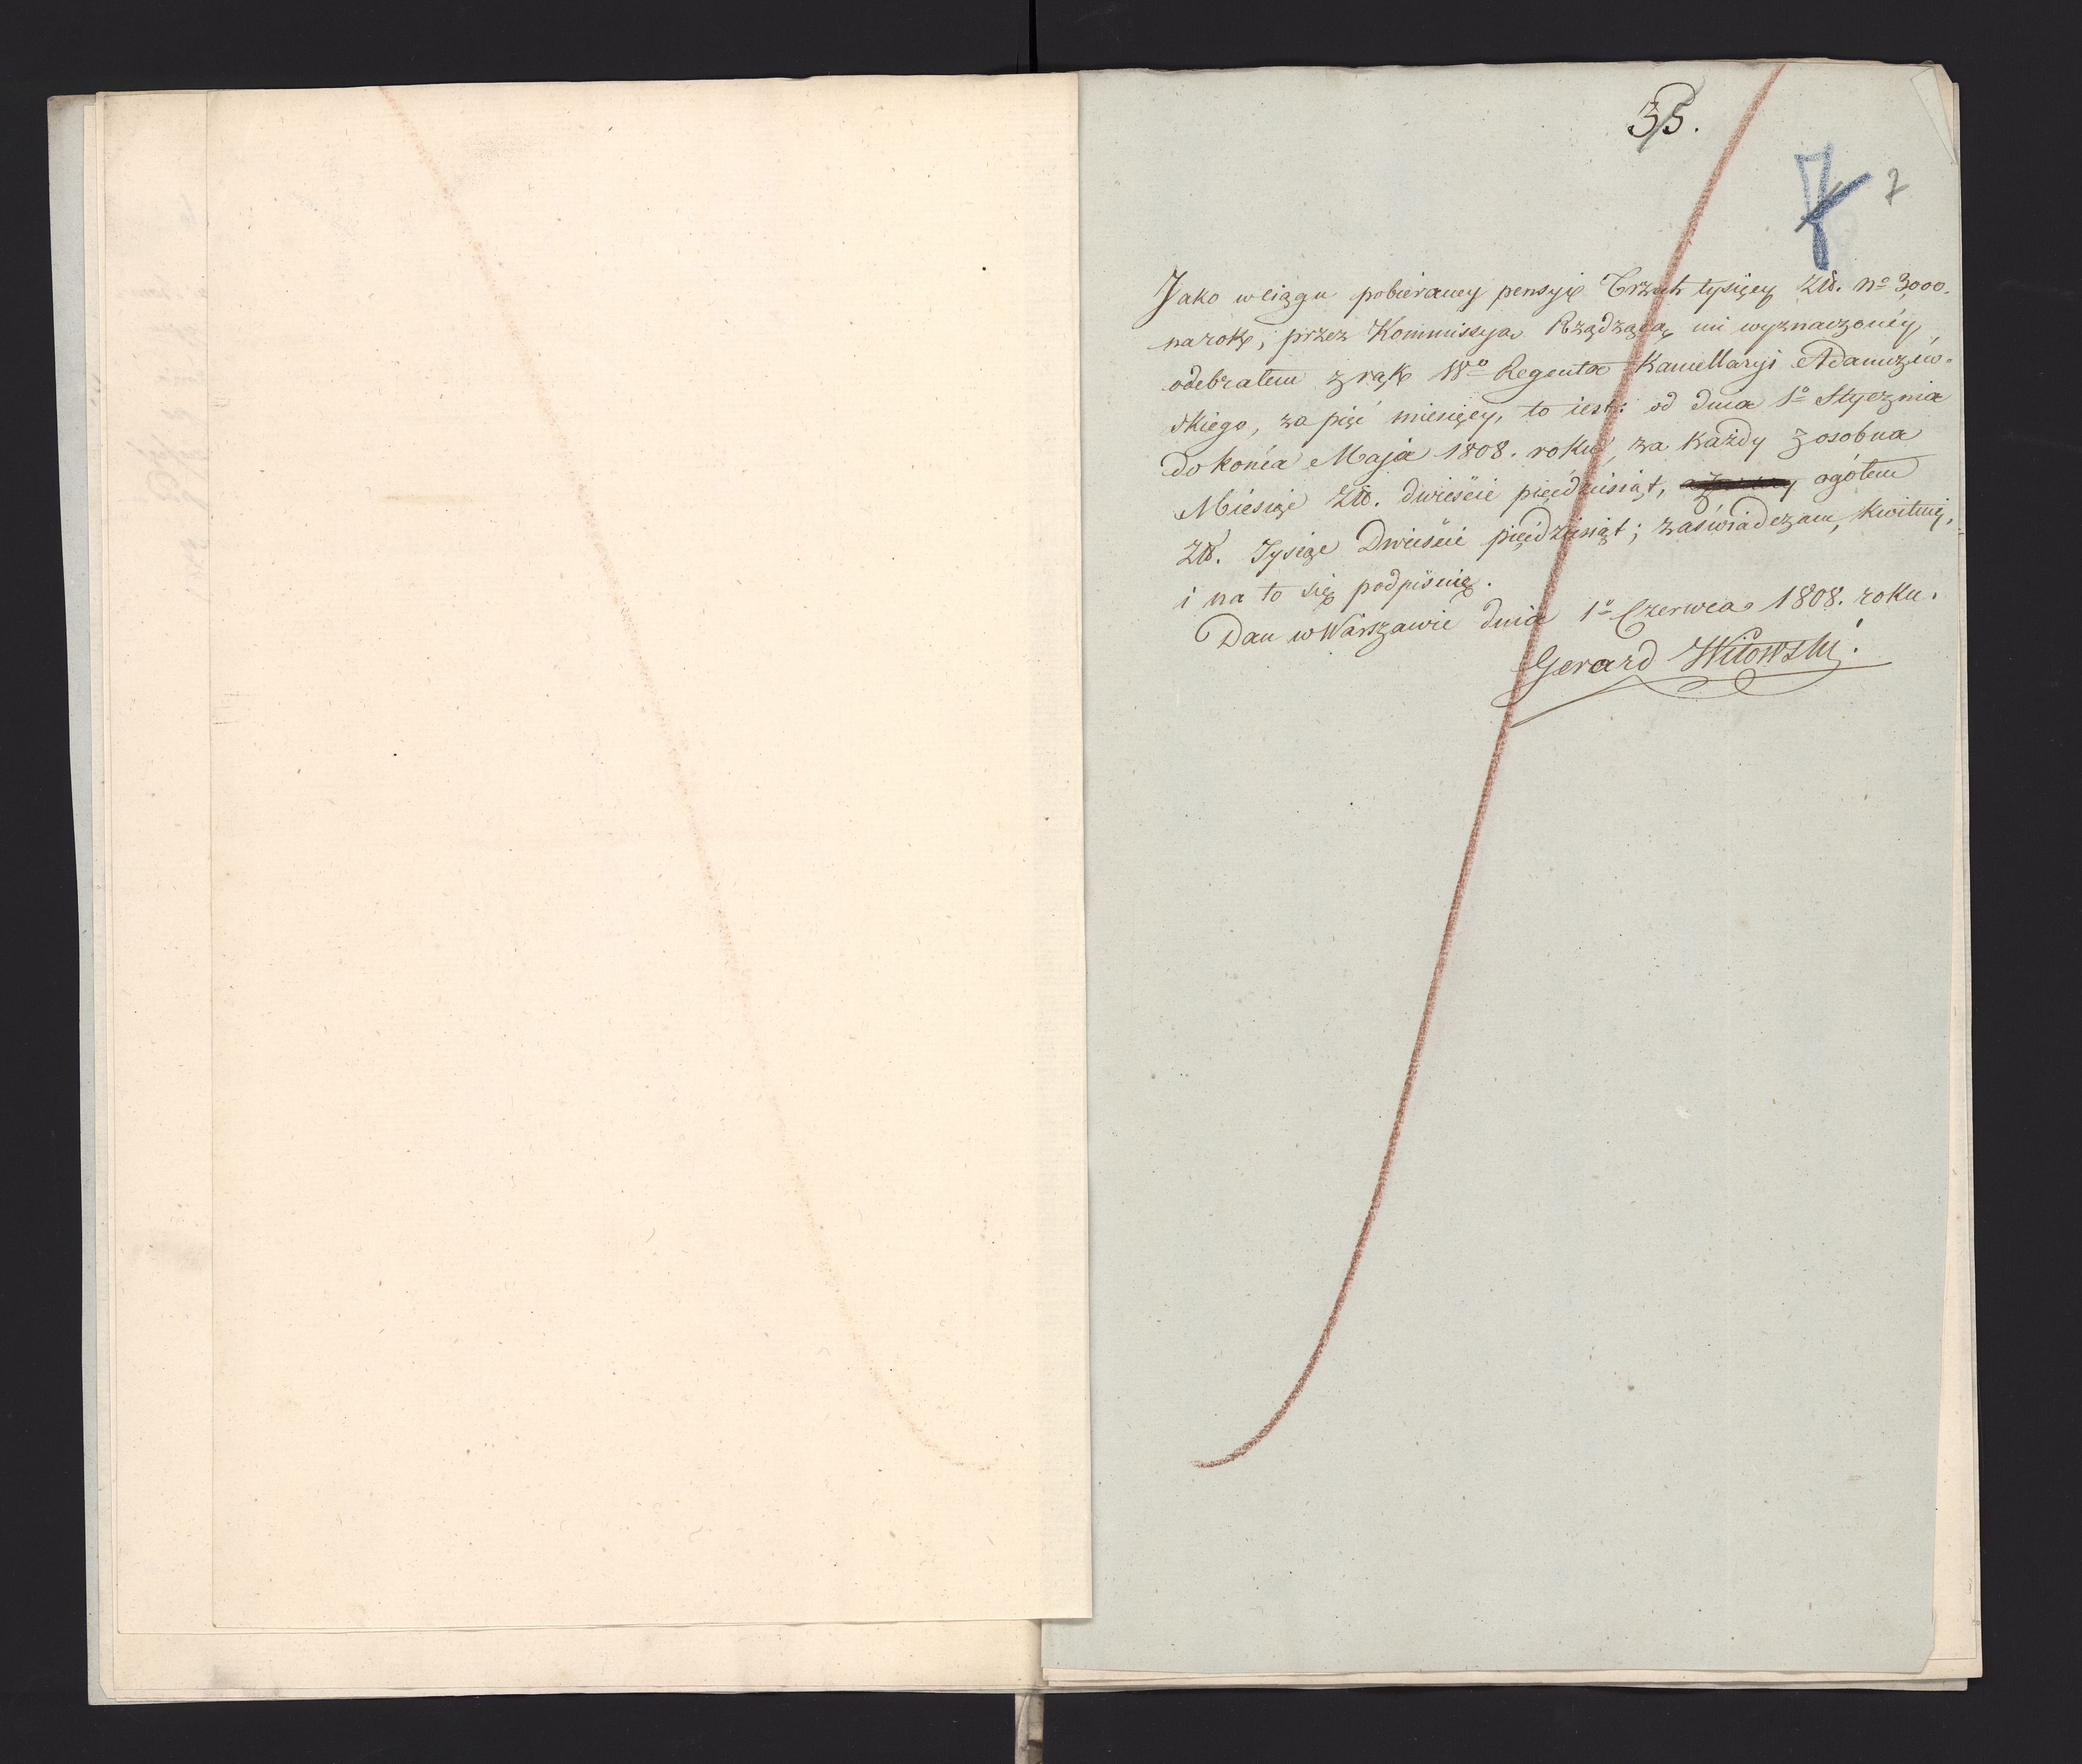 35.
7 7
Jako w ciągu pobieraney pensyi Trzech tysięcy Zł. no 3,000.
na rok, przez Kommissyą Rządzącą mi wyznaczoney,
odebrałem z rąk Wo Regenta Kancellaryi Adamczew-
skiego, za pięć miesięcy, to iest: od dnia 1o Stycznia
do końca Maja 1808. roku, za każdy z osobna
Miesiąc Zł. dwieście pięćdziesiąt, ogółem
Zł. Tysiąc Dwieście pięćdziesiąt; zaświadczam, kwituię,
i na to się podpisuię.
Dan w Warszawie dnia 1o Czerwca 1808. roku.
Gerard Witowski.